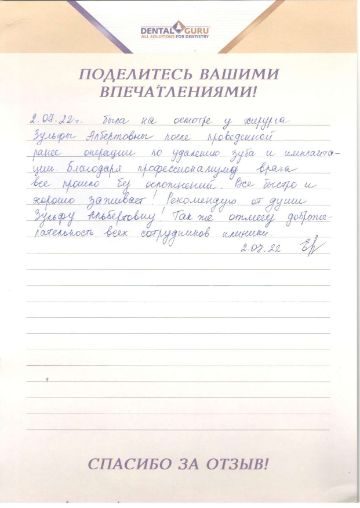 DENTAL GURU
ALL SOLUTIONS FOR DENTISTRY
ПОДЕЛИТЕСЬ ВАШИМИ
ВПЕЧАТЛЕНИЯМИ!
2.07.22г. была на осмотре у хирурга
Зульфы Альбертовны после проведенной
ранее операции по удалению зуба и импланта-
ции. Благодаря профессионализму врача
все прошло без осложнений. Все быстро и
хорошо заживает! Рекомендую от души
Зульфу Альбертовну! Так же отмечу доброже-
лательность всех сотрудников клиники
2.07.22
СПАСИБО ЗА ОТЗЫВ!